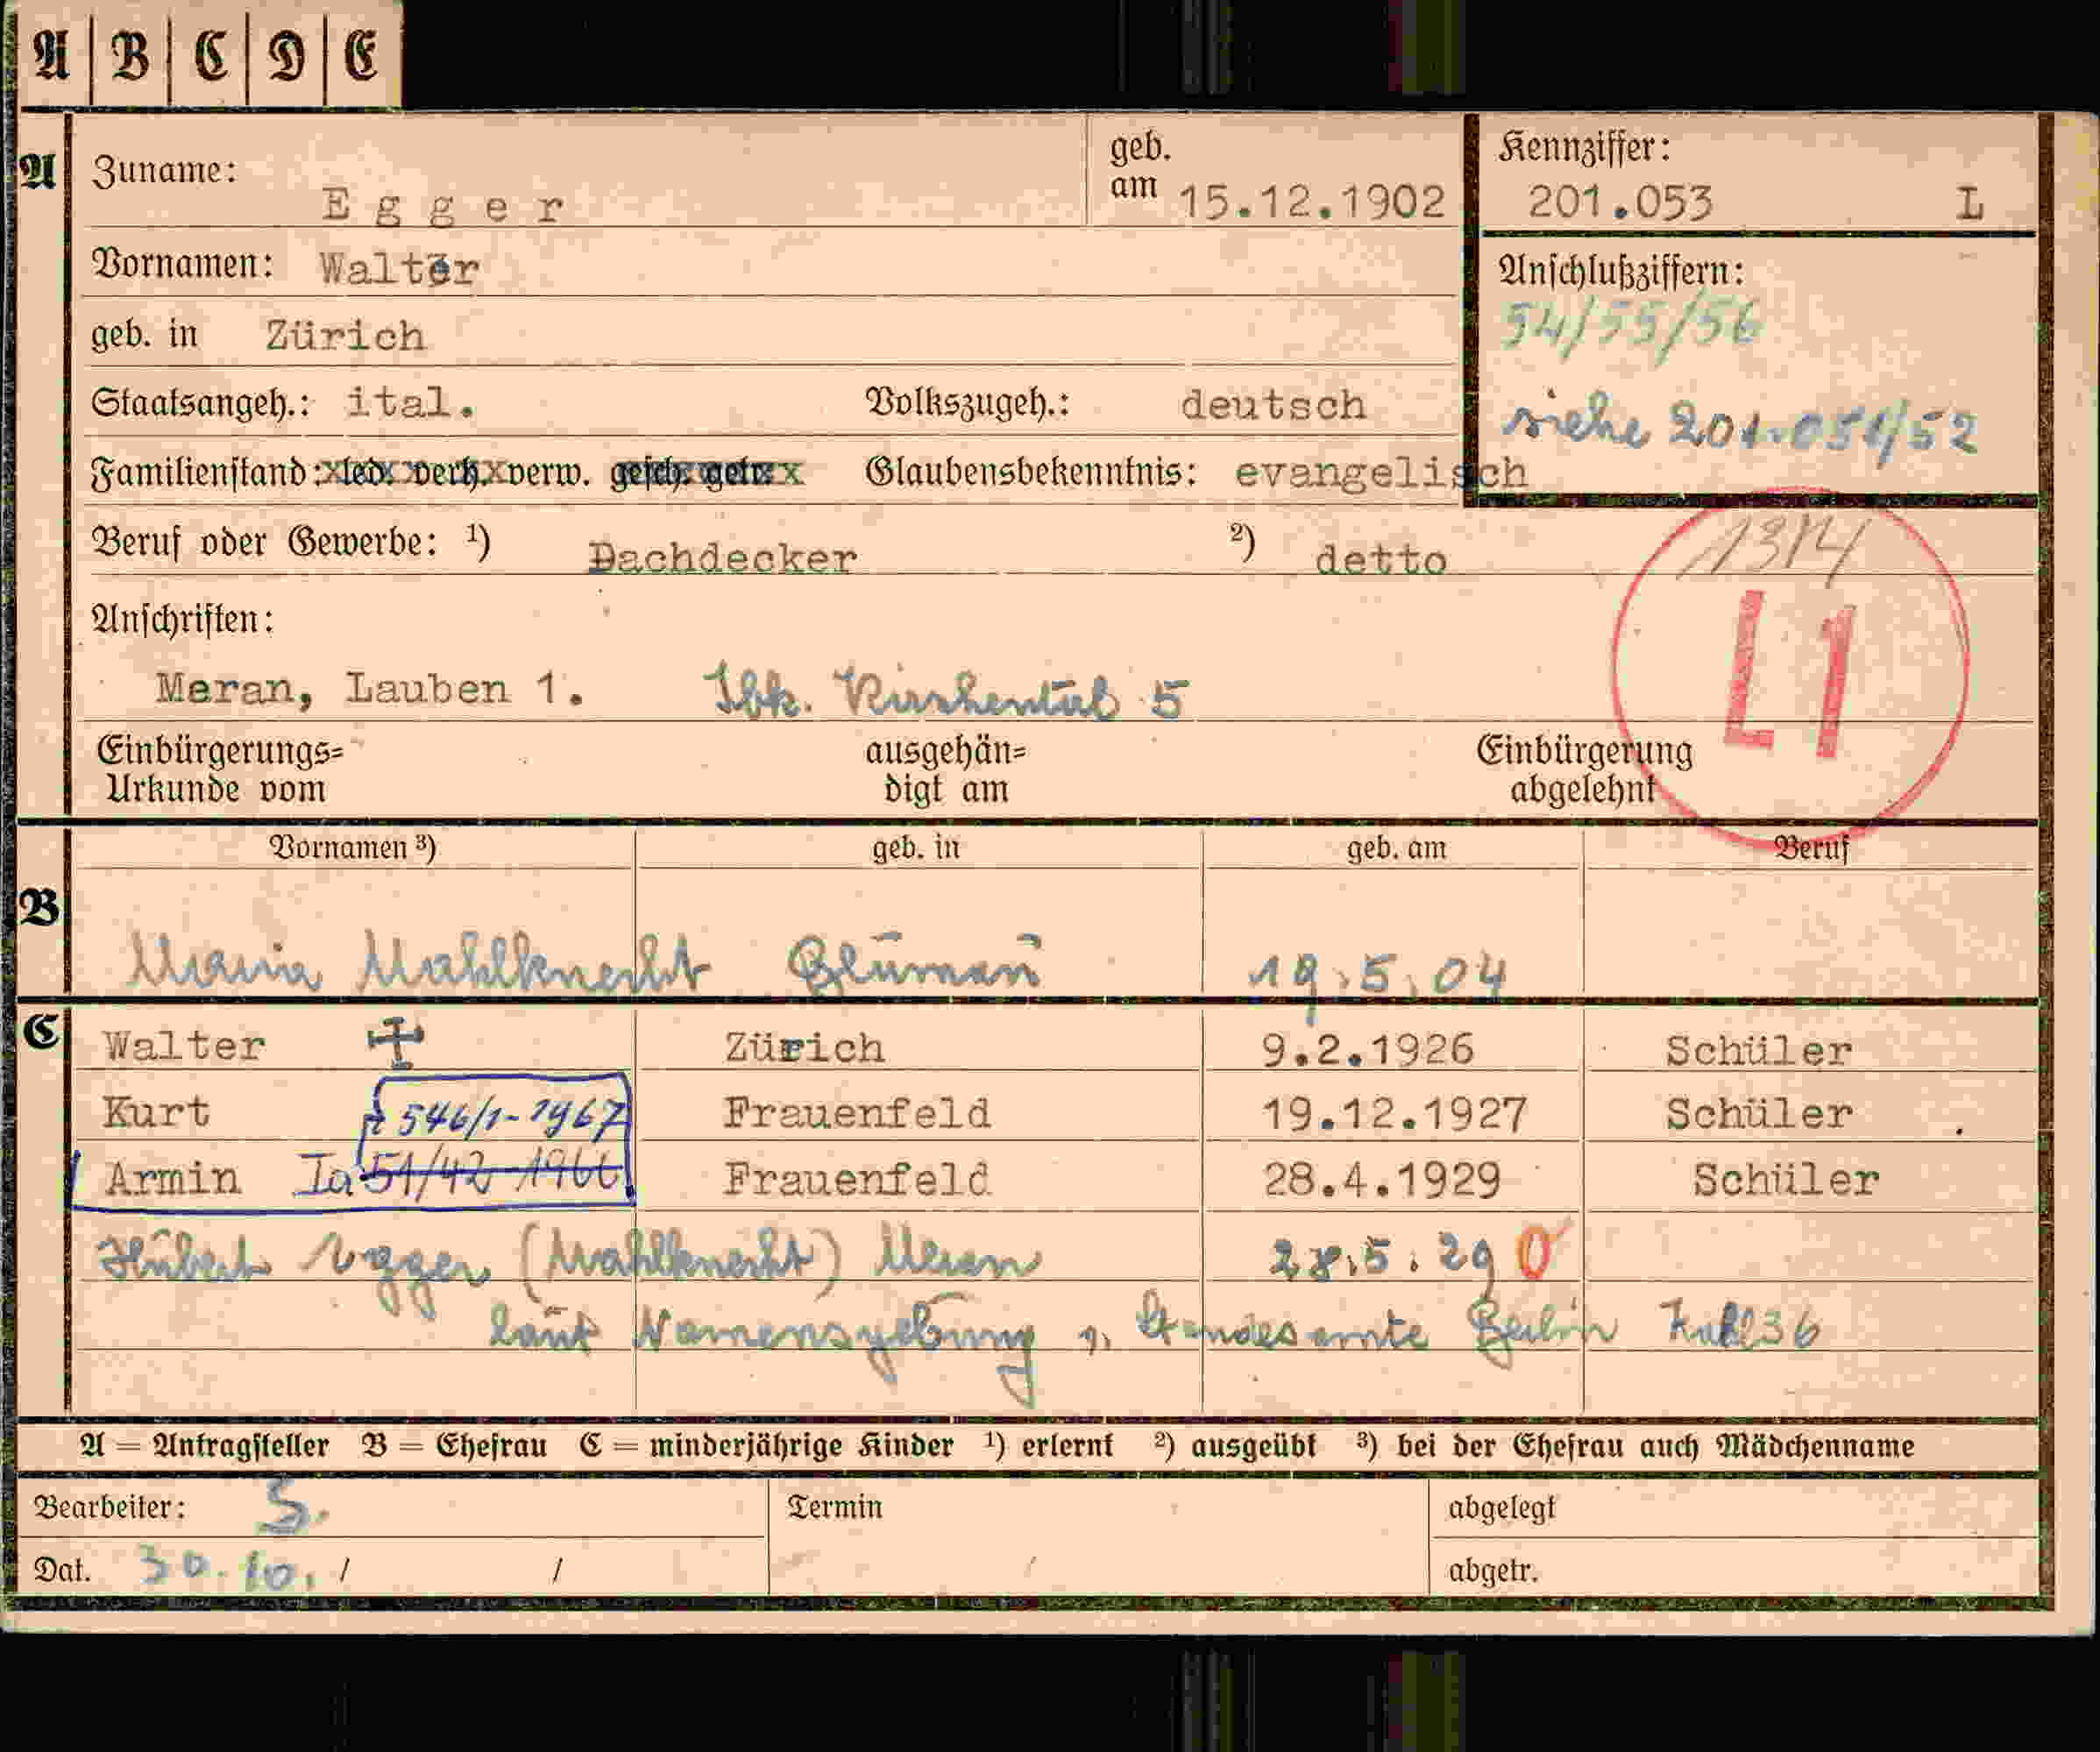 A B C D E
A Zuname: Egger geb. am 15.12.1902 Kennziffer: 201.053 L
Vornamen: Walter Anschlußziffern:
54/55/56
geb. in Zürich
Staatsangeh.: ital. Volkszugeh.: deutsch siehe 201.051/52
Familienstand: led. verh. verw. gesch. getr. Glaubensbekenntnis: evangelisch
Beruf oder Gewerbe: ¹) Dachdecker ²) detto
Anschriften: L1
Meran, Lauben 1. Ibk. 5
Einbürgerungs= ausgehän= Einbürgerung
Urkunde vom digt am abgelehnt
Vornamen ³) geb. in geb. am Beruf
B
Maria Mahlknecht 19.5.04
C Walter Zürich 9.2.1926 Schüler
Kurt 546/1-1967 Frauenfeld 19.12.1927 Schüler
Armin Ia 51/42-1966 Frauenfeld 28.4.1929 Schüler
Hubert Egger (Mahlknecht) Meran 28.5.29 0
laut Namensgebung Standesamte Berlin
A = Antragsteller B = Ehefrau C = minderjährige Kinder ¹) erlernt ²) ausgeübt ³) bei der Ehefrau auch Mädchenname
Bearbeiter: S. Termin abgelegt
Dat. 30.10. / / abgetr.